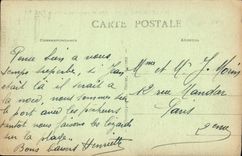 CARTE POSTALE
CORRESPONDANCE
ADRESSE
Pense bien à nous
temps superbe, si Jean
était là il serait à
la noce, nous sommes sur
le port avec les pêcheurs
tantôt nous faisons les lézards
sur la plage.
Bons baisers Henriette
Mme et Mr J. Morin
12 rue Mandar
Paris
2eme